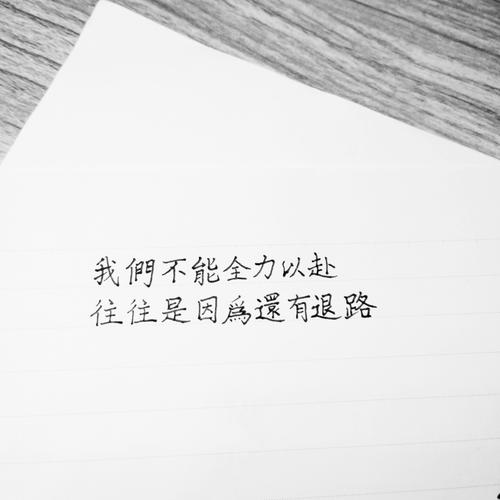 我們不能全力以赴
往往是因為還有退路